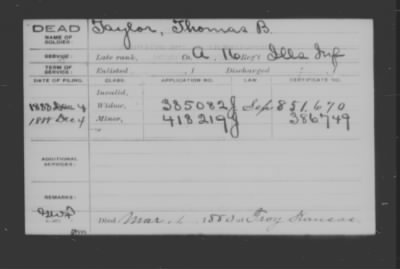 DEAD
NAME OF SOLDIER:
Taylor, Thomas B.
SERVICE:
Late rank, Co. A, 16 Reg't Ills Inf
TERM OF SERVICE:
Enlisted , 1 Discharged , 1
DATE OF FILING. CLASS. APPLICATION NO. LAW. CERTIFICATE NO.
Invalid,
1883 Dec 4 Widow, 385082 851,670
1888 Dec 4 Minor, 418219 386749
ADDITIONAL SERVICES:
REMARKS:
Died Mar. 1883 at Troy Kansas